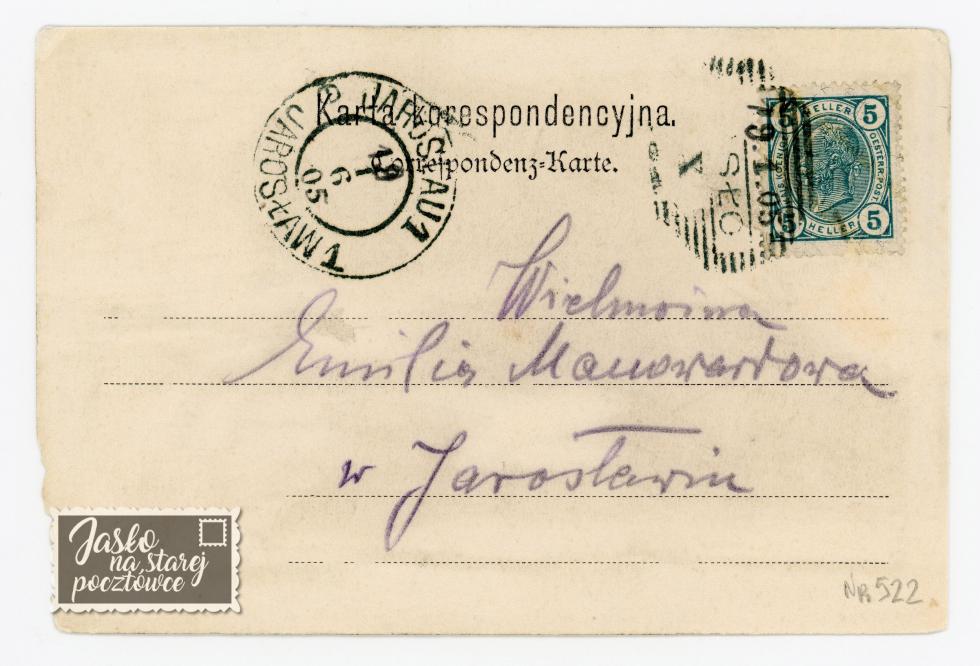 Karta korespondencyjna.
Correspondenz-Karte.
JAROSLAU 1
JAROSŁAW 1
19
6
05
19.1.05
X
5 HELLER 5
5 HELLER 5
OESTERR. POST
Wielmożna
Emilia Manowardowa
w Jarosławiu
Jasło
na starej
pocztówce
NR 522